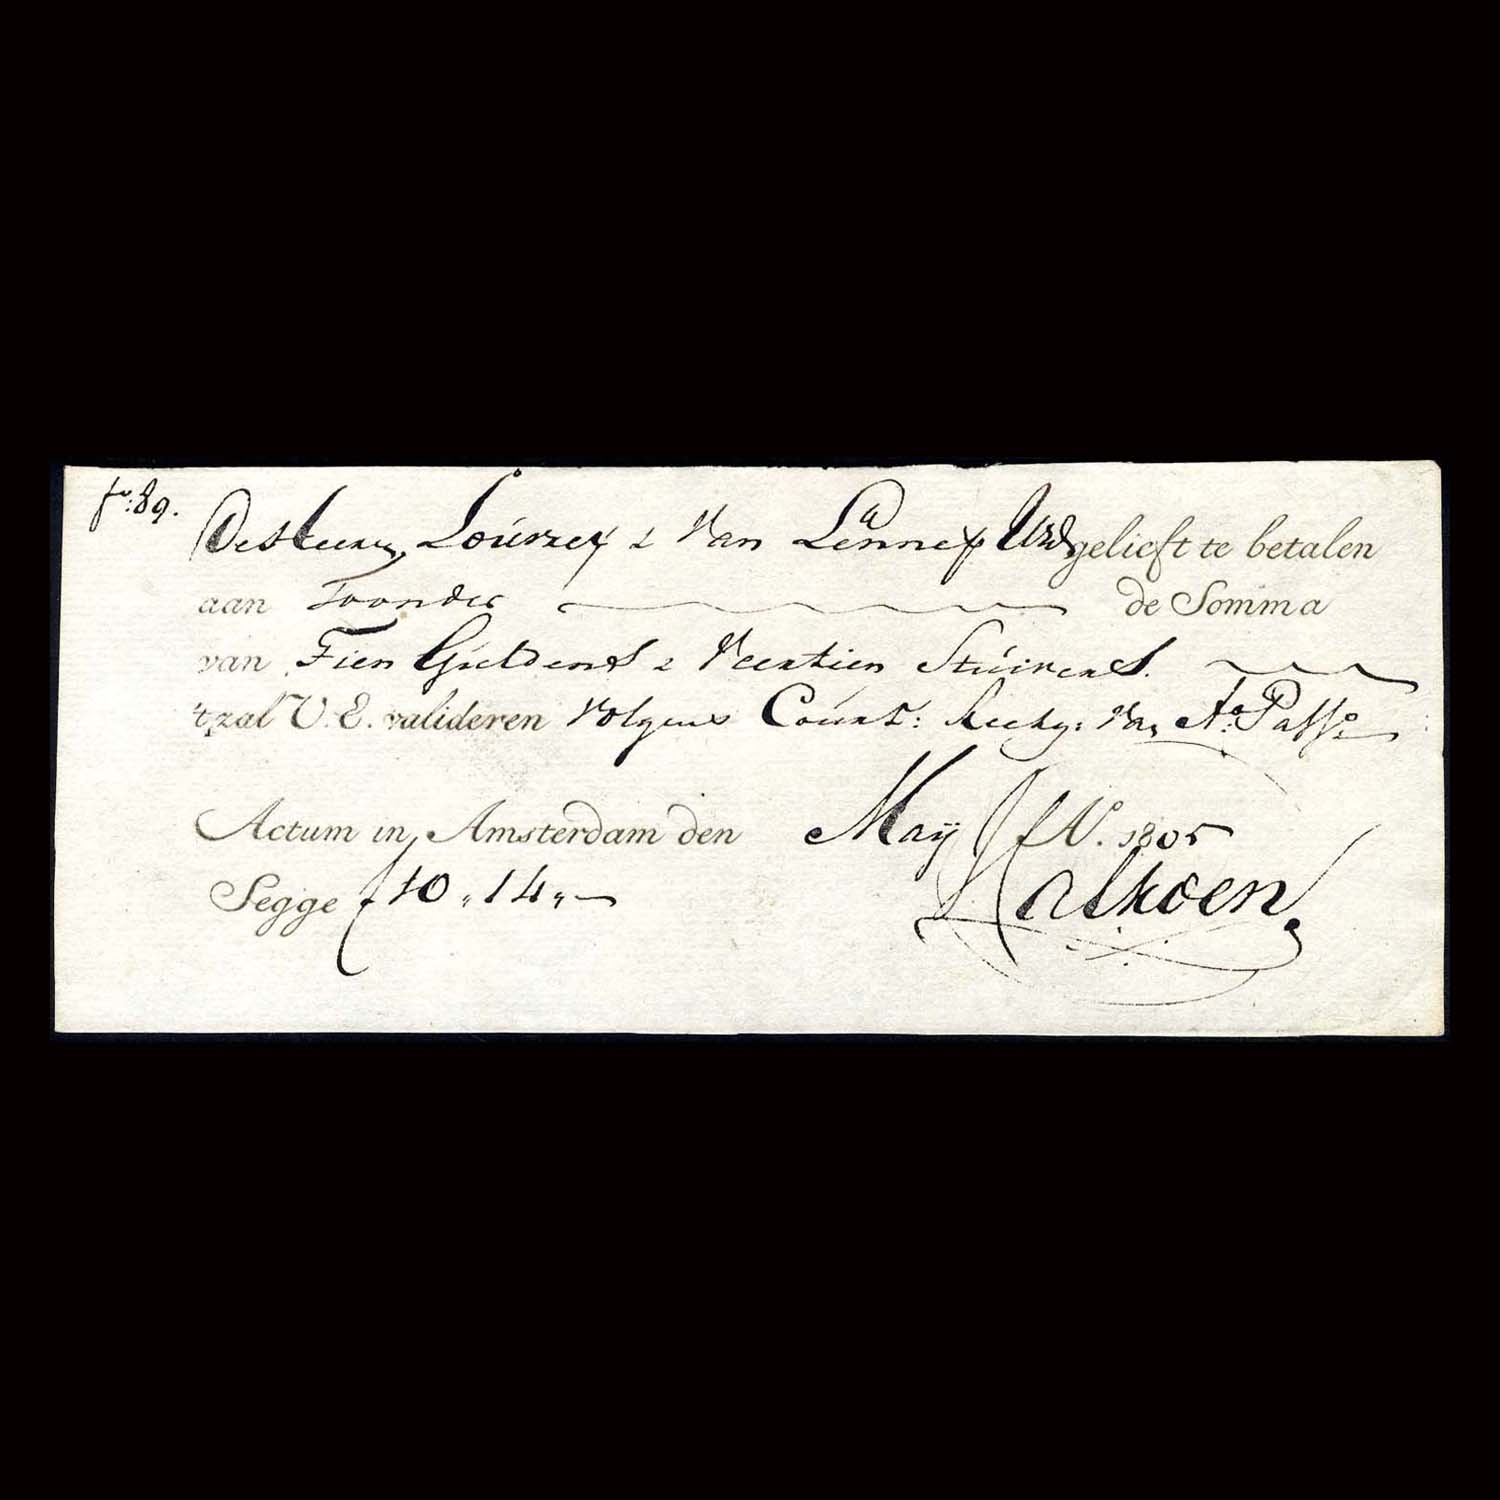 fo: 89.
De Heeren Lourzex & Van Lennep Uwd gelieft te betalen
aan Toonder de Somma
van Tien Guldens & Veertien Stuivers.
't zal U.E. valideren Volgens Court: Reekg: van Ao. Passo
Actum in Amsterdam den May No. 1805
Segge f 10 „ 14 „ —
Kalkoen